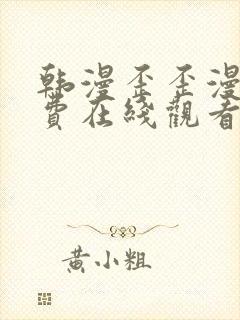 韩漫歪歪漫
费在线觀看
黄小粗